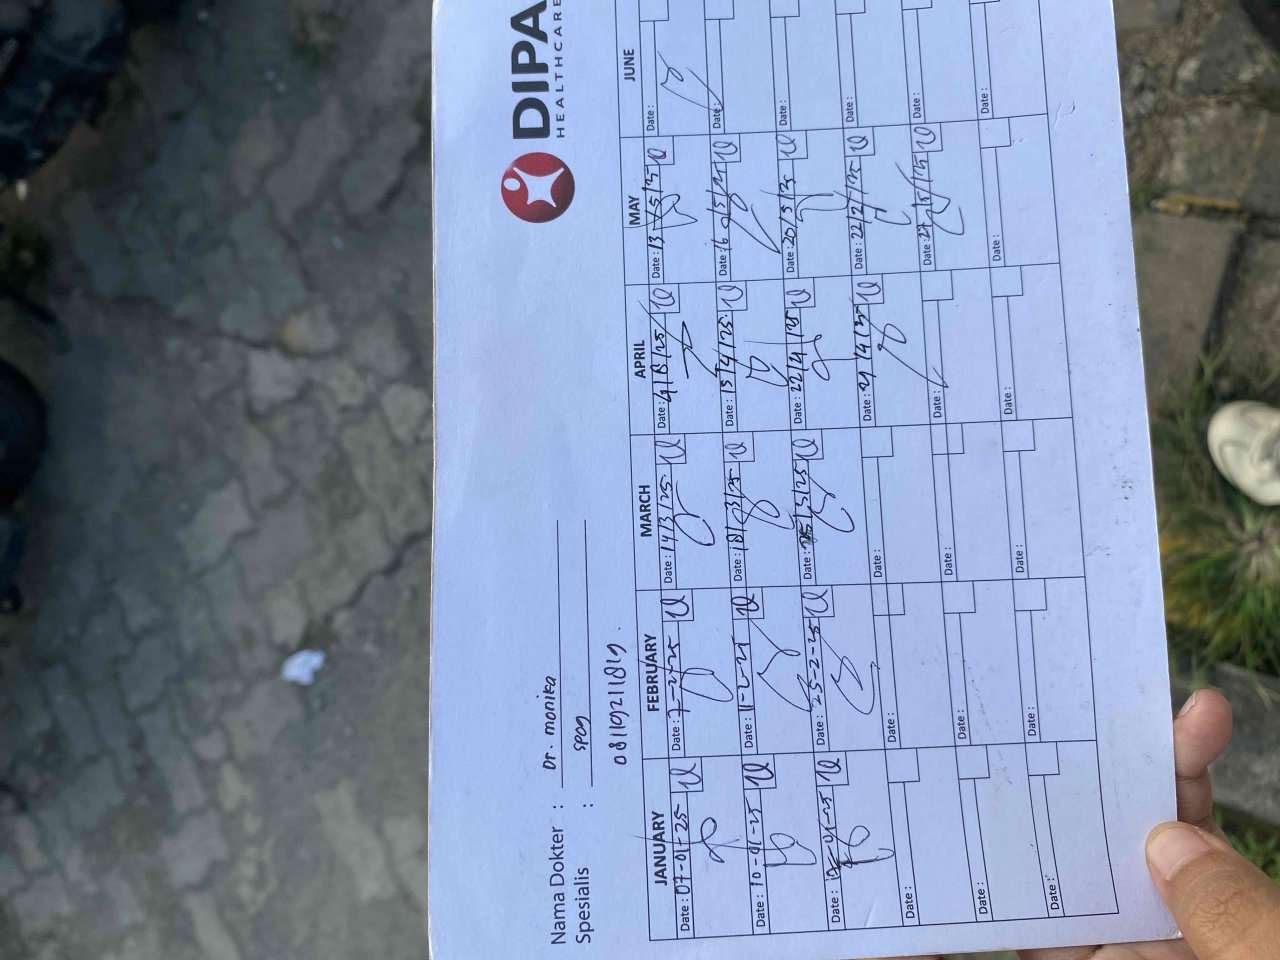 DIPA
HEALTHCARE
Nama Dokter : Dr. monika
Spesialis : spog
08119211819
JANUARY FEBRUARY MARCH APRIL MAY JUNE
Date : 07-01-25 Date : 7-2-25 Date : 14/3/25 Date : Date : 13 Date :
Date : 10-01-25 Date : 11-2-25 Date : 18/3/25 Date : 15/4/25 Date : 16 Date :
Date : Date : 25-2-25 Date : Date : 22/4/25 Date : 20/5/25 Date :
Date : Date : Date : Date : Date : 22/ Date :
Date : Date : Date : Date : Date : 27/5/25 Date :
Date : Date : Date : Date : Date : Date :